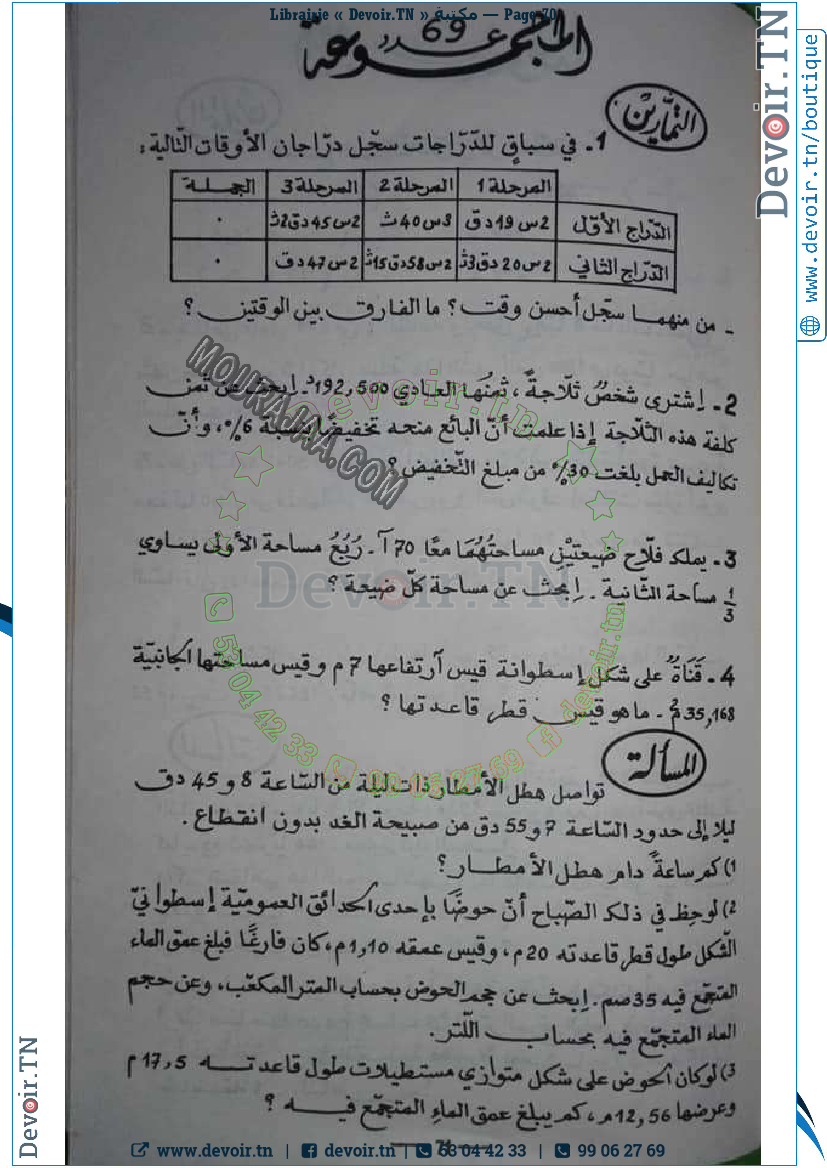 Librairie « Devoir.TN » مكتبة — Page 70
المجموعة عدد 69
التمارين
1- في سباقٍ للدّرّاجات سجّل درّاجان الأوقات التّالية :
المرحلة 1 المرحلة 2 المرحلة 3 الجملة
الدّراج الأوّل 2س 19 دق 3س 40 ث 2س 45 دق 2ث .
الدّراج الثاني 2س 20 دق 3ث 2س 58 دق 15ث 2س 47 دق .
- من منهما سجّل أحسن وقت ؟ ما الفارق بين الوقتين ؟
2- اِشترى شخصٌ ثلّاجةً ، ثمنُها العادي 192,500د. اِبحث عن ثمن
كلفة هذه الثّلاجة إذا علمت أنّ البائع منحه تخفيضًا بنسبة 6% ، وأنّ
تكاليف الحمل بلغت 30% من مبلغ التّخفيض ؟
3- يملك فلّاح ضيعتيْن مساحتُهُمَا معًا 70 آ - رُبُعُ مساحة الأولى يساوي
1/3 مساحة الثّانية - اِبحث عن مساحة كلّ ضيعة ؟
4- قَنَاةٌ على شكل إسطوانة قيس آرتفاعها 7 م وقيس مساحتها الجانبيّة
35,168 م² - ما هو قيس قطر قاعدتها ؟
المسألة
تواصل هطل الأمطار ذات ليلة من السّاعة 8 و 45 دق
ليلا إلى حدود السّاعة 7 و 55 دق من صبيحة الغد بدون انقطاع .
1) كم ساعةً دام هطل الأمطار ؟
2) لوحظ في ذلك الصّباح أنّ حوضًا بإحدى الحدائق العموميّة إسطوانيّ
الشّكل طول قطر قاعدته 20 م ، وقيس عمقه 1,10 م ، كان فارغًا فبلغ عمق الماء
المتجمّع فيه 35 صم . اِبحث عن حجم الحوض بحساب المتر المكعّب ، وعن حجم
الماء المتجمّع فيه بحساب اللّتر .
3) لو كان الحوض على شكل متوازي مستطيلات طول قاعدته 17,5 م
وعرضها 12,56 م ، كم يبلغ عمق الماءِ المتجمّع فيه ؟
71
MOURAJAA.COM
devoir.tn
Devoir.TN
53 04 42 33
99 06 27 69
devoir.tn
Devoir.TN
www.devoir.tn/boutique
Devoir.TN
www.devoir.tn | devoir.tn | 53 04 42 33 | 99 06 27 69